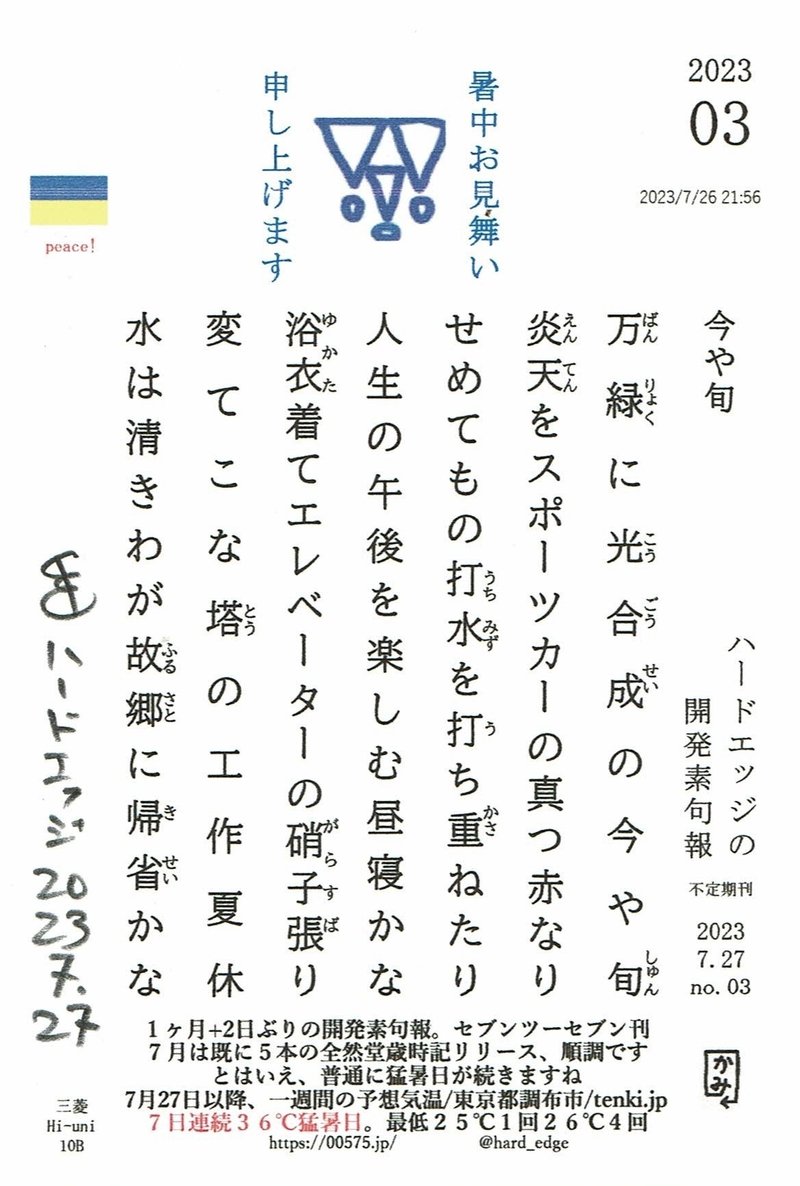 2023
03
2023/7/26 21:56
暑中お見舞い
申し上げます
peace!
今や旬
ハードエッジの
開発素句報
不定期刊
2023
7.27
no. 03
万緑に光合成の今や旬
ばんりょく
こうごうせい
しゅん
炎天をスポーツカーの真つ赤なり
えんてん
せめてもの打水を打ち重ねたり
うちみず
う
かさ
人生の午後を楽しむ昼寝かな
浴衣着てエレベーターの硝子張り
ゆかた
がらすば
変てこな塔の工作夏休
とう
水は清きわが故郷に帰省かな
ふるさと
きせい
ハードエッジ 2023 7.27
1ヶ月+2日ぶりの開発素句報。セブンツーセブン刊
7月は既に5本の全然堂歳時記リリース、順調です
とはいえ、普通に猛暑日が続きますね
7月27日以降、一週間の予想気温/東京都調布市/tenki.jp
7日連続36℃猛暑日。最低25℃1回26℃4回
https://00575.jp/ @hard_edge
かみ
三菱
Hi-uni
10B